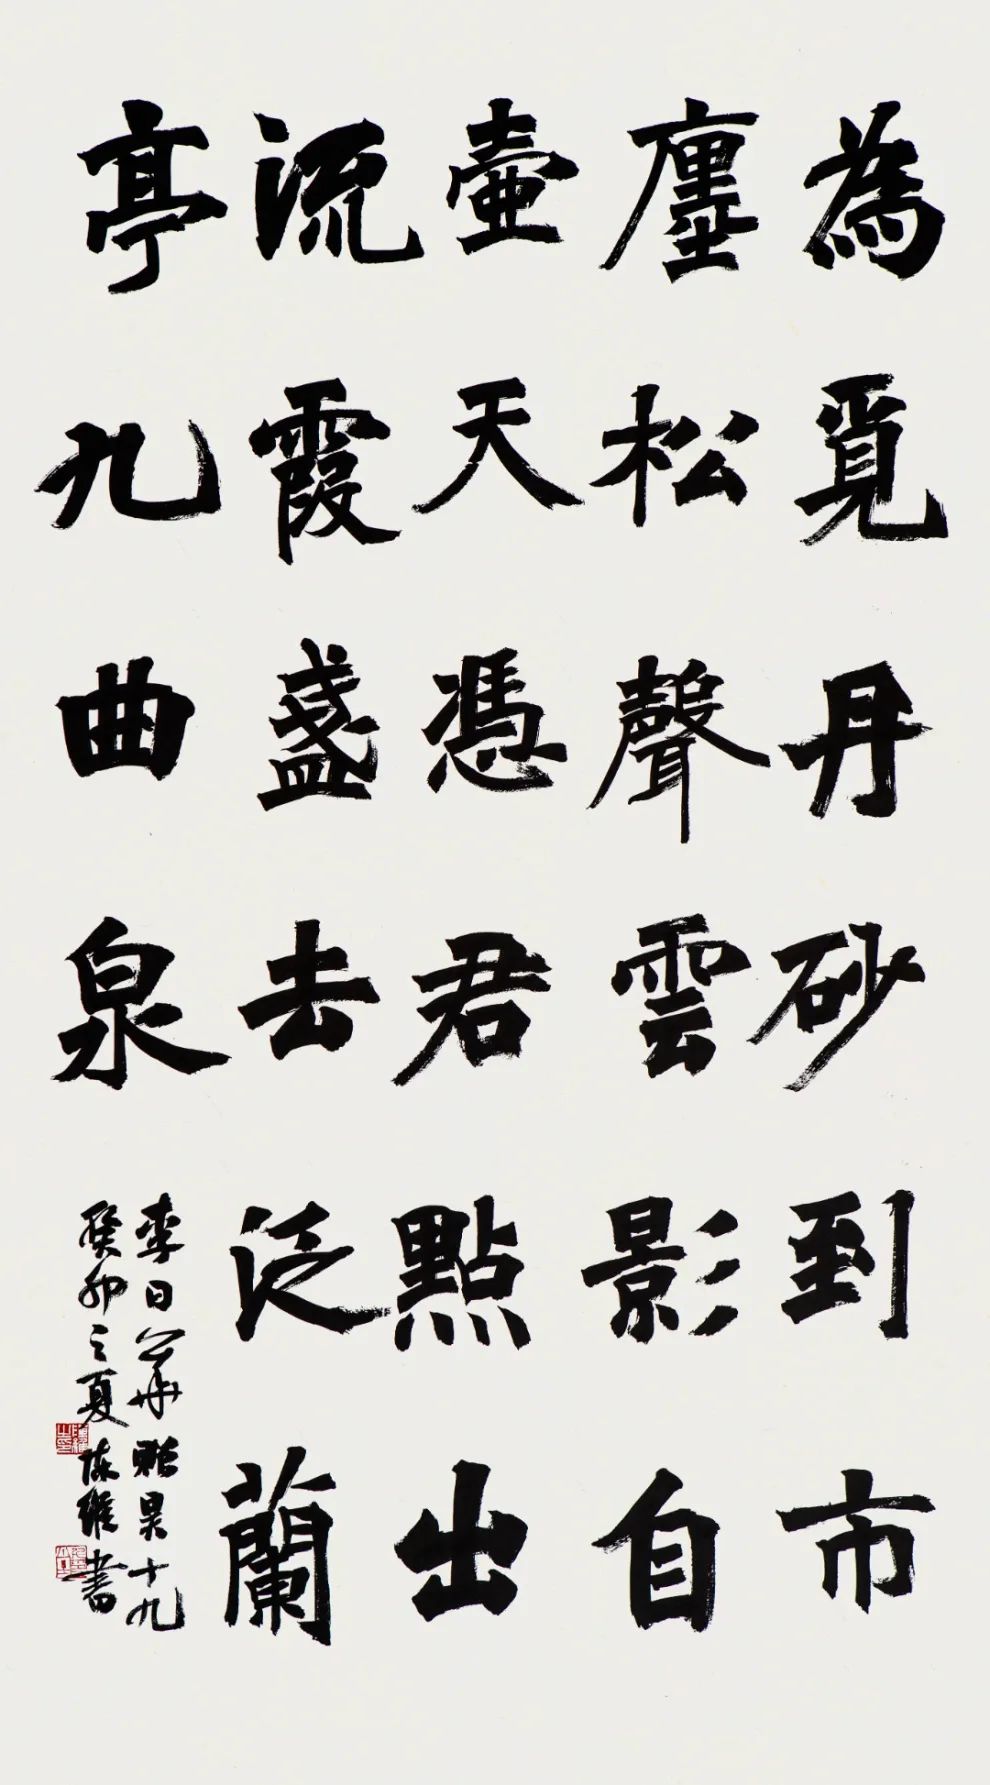 為覓丹砂到市
廛松聲雲影自
壺天憑君點出
流霞盞去泛蘭
亭九曲泉
李日華贈昊十九
癸卯之夏陈維書